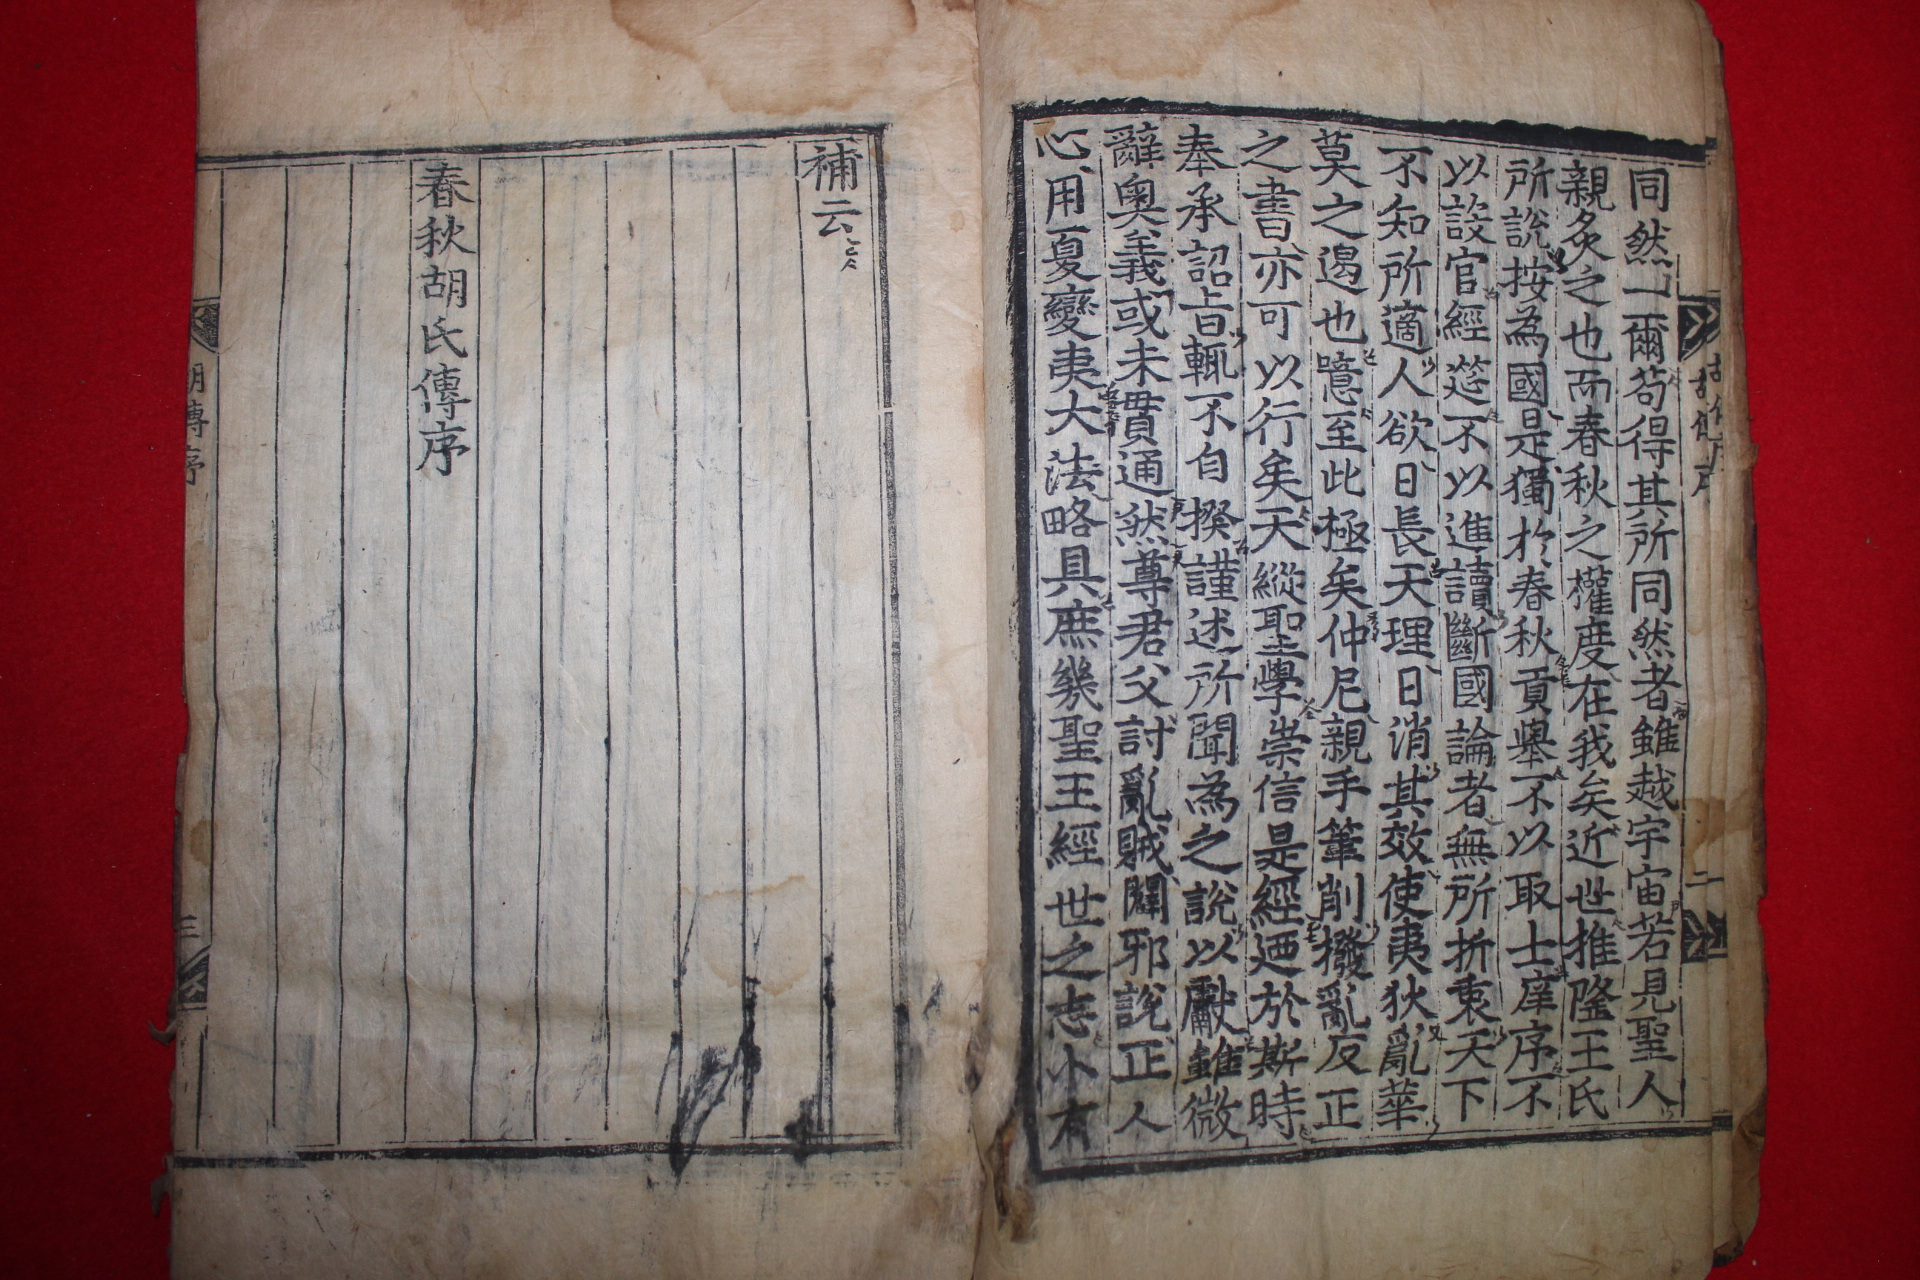 同然一爾苟得其所同然者雖越宇宙若見聖人
親炙之也而春秋之權度在我矣近世推隆王氏
所說按為國是獨於春秋貢舉不以取士庠序不
以設官經筵不以進讀斷國論者無所折衷天下
不知所適人欲日長天理日消其效使夷狄亂華
莫之遏也噫至此極矣仲尼親手筆削撥亂反正
之書亦可以行矣天縱聖學崇信是經廼於斯時
奉承詔旨輒不自揆謹述所聞為之說以獻雖微
辭奧義或未貫通然尊君父討亂賊闢邪說正人
心用夏變夷大法略具庶幾聖王經世之志小有
二
補云
春秋胡氏傳序
胡傳序
三